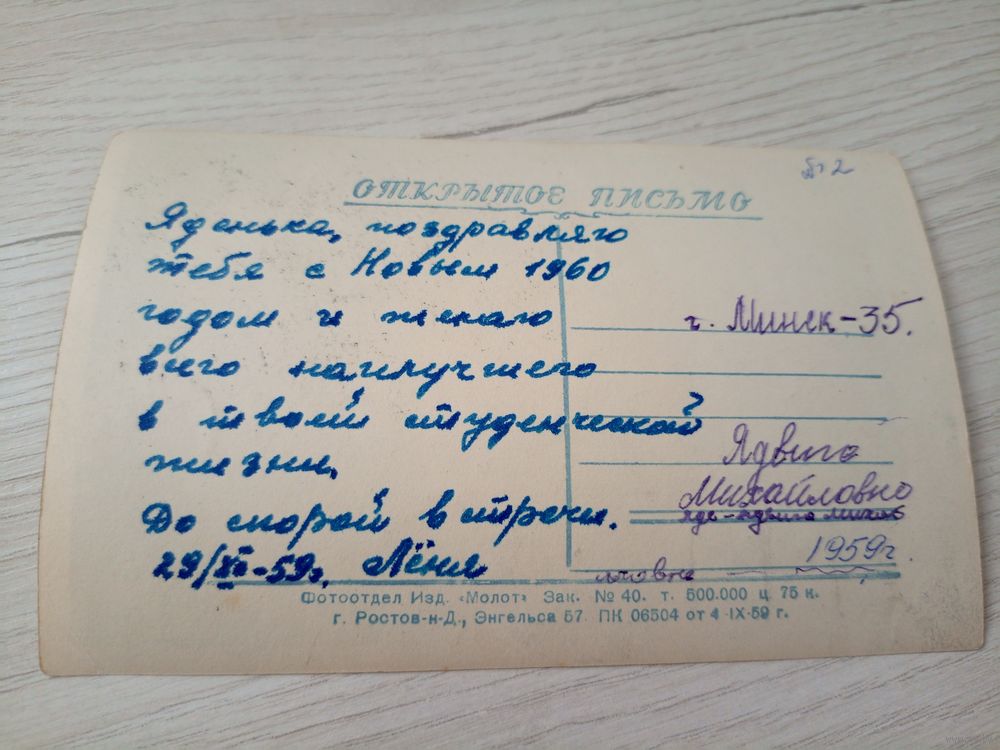 ОТКРЫТОЕ ПИСЬМО
Яденька, поздравляю
тебя с Новым 1960
годом и желаю
всего наилучшего
в твоей студенческой
жизни.
До скорой встречи.
29/XII-59г. Лёня
г. Минск-35.
Ядвига
Михайловна
1959г.
Фотоотдел Изд. «Молот» Зак. № 40. т. 500.000 ц. 75 к.
г. Ростов-н-Д., Энгельса 57. ПК 06504 от 4-IX-59 г.